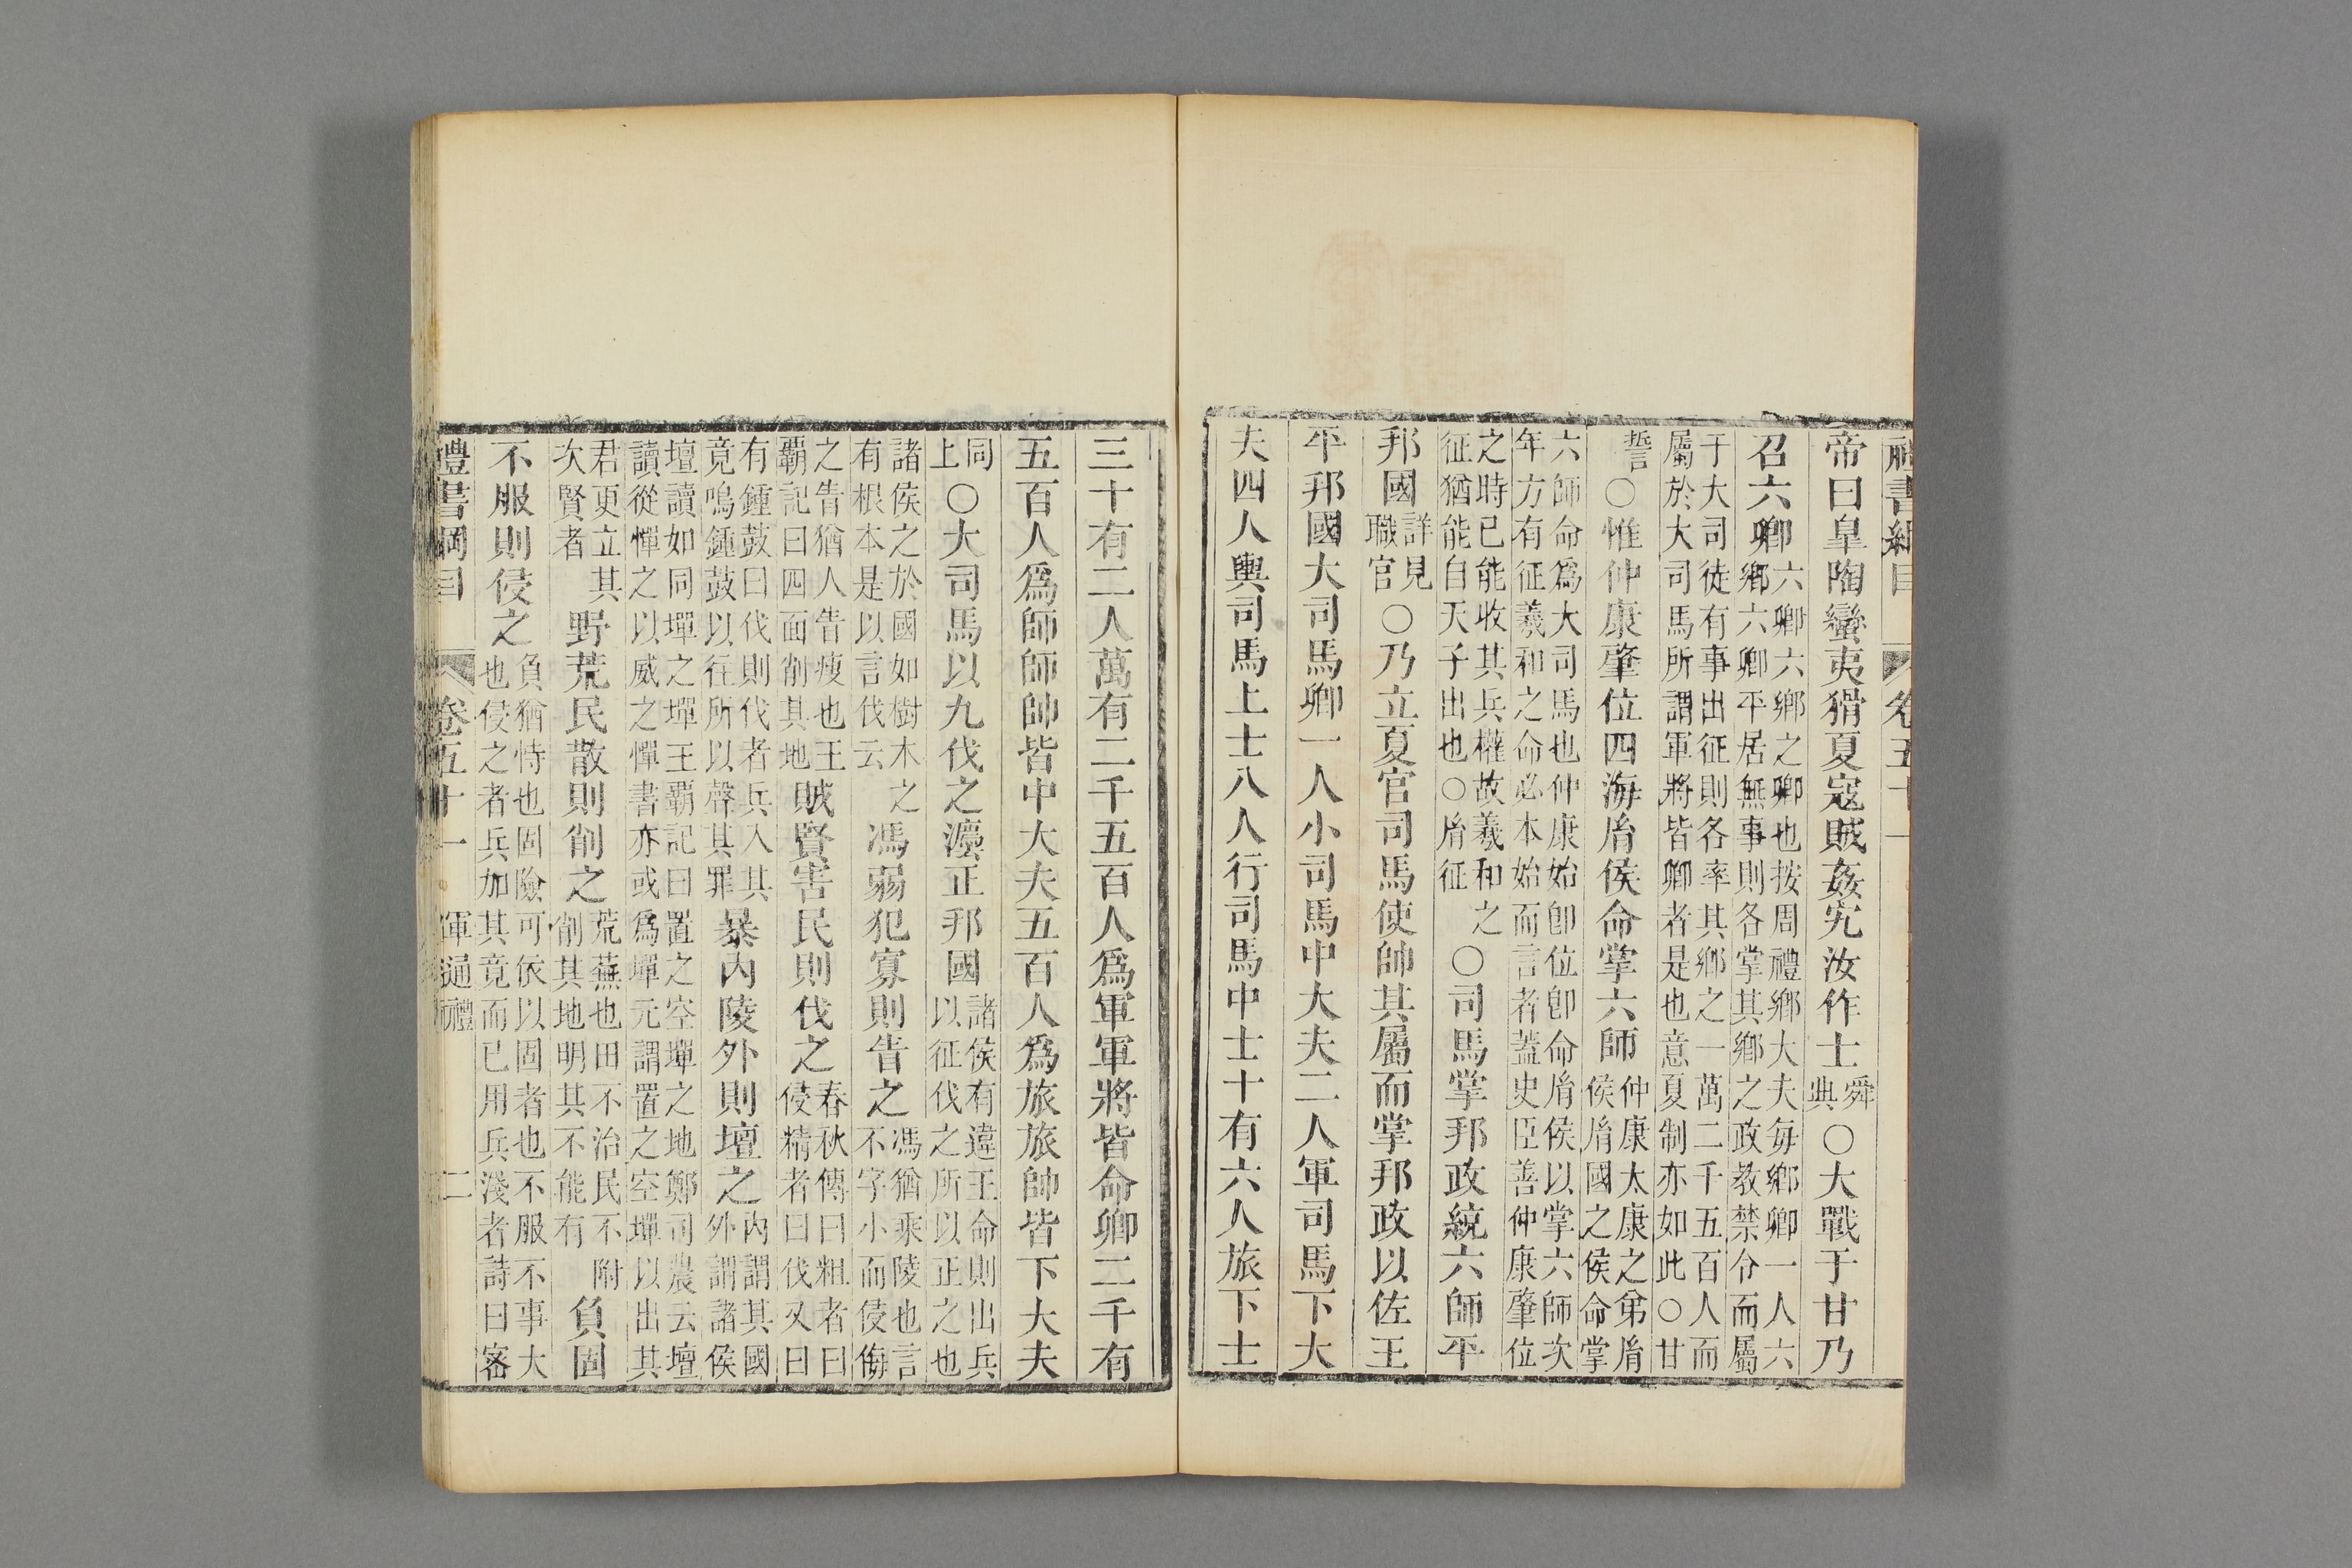 禮書綱目 卷五十一
帝曰皐陶蠻夷猾夏寇賊姦宄汝作士舜典○大戰于甘乃
召六卿六卿六鄉之卿也按周禮鄉大夫每鄉卿一人六
鄉六卿平居無事則各掌其鄉之政教禁令而屬
于大司徒有事出征則各率其鄉之一萬二千五百人而
屬於大司馬所謂軍將皆卿者是也意夏制亦如此○甘
誓○惟仲康肇位四海胤侯命掌六師仲康太康之弟胤
侯胤國之侯命掌
六師命爲大司馬也仲康始卽位卽命胤侯以掌六師次
年方有征羲和之命必本始而言者蓋史臣善仲康肇位
之時已能收其兵權故羲和之
征猶能自天子出也○胤征○司馬掌邦政統六師平
邦國詳見職官○乃立夏官司馬使帥其屬而掌邦政以佐王
平邦國大司馬卿一人小司馬中大夫二人軍司馬下大
夫四人輿司馬上士八人行司馬中士十有六人旅下士
三十有二人萬有二千五百人爲軍軍將皆命卿二千有
五百人爲師師帥皆中大夫五百人爲旅旅帥皆下大夫
同上○大司馬以九伐之灋正邦國諸侯有違王命則出兵
以征伐之所以正之也
諸侯之於國如樹木之
有根本是以言伐云馮弱犯寡則眚之馮猶乘陵也言
不字小而侵侮
之眚猶人眚瘦也王
覇記曰四面削其地賊賢害民則伐之春秋傳曰粗者曰
侵精者曰伐又曰
有鍾鼓曰伐則伐者兵入其
竟鳴鍾鼓以往所以聲其罪暴內陵外則壇之內謂其國
外謂諸侯
壇讀如同墠之墠王覇記曰置之空墠之地鄭司農云壇
讀從憚之以威之憚書亦或爲墠元謂置之空墠以出其
君更立其
次賢者野荒民散則削之荒蕪也田不治民不附
削其地明其不能有負固
不服則侵之負猶恃也固險可依以固者也不服不事大
也侵之者兵加其竟而已用兵淺者詩曰密
禮書綱目 卷五十一 軍通禮 二